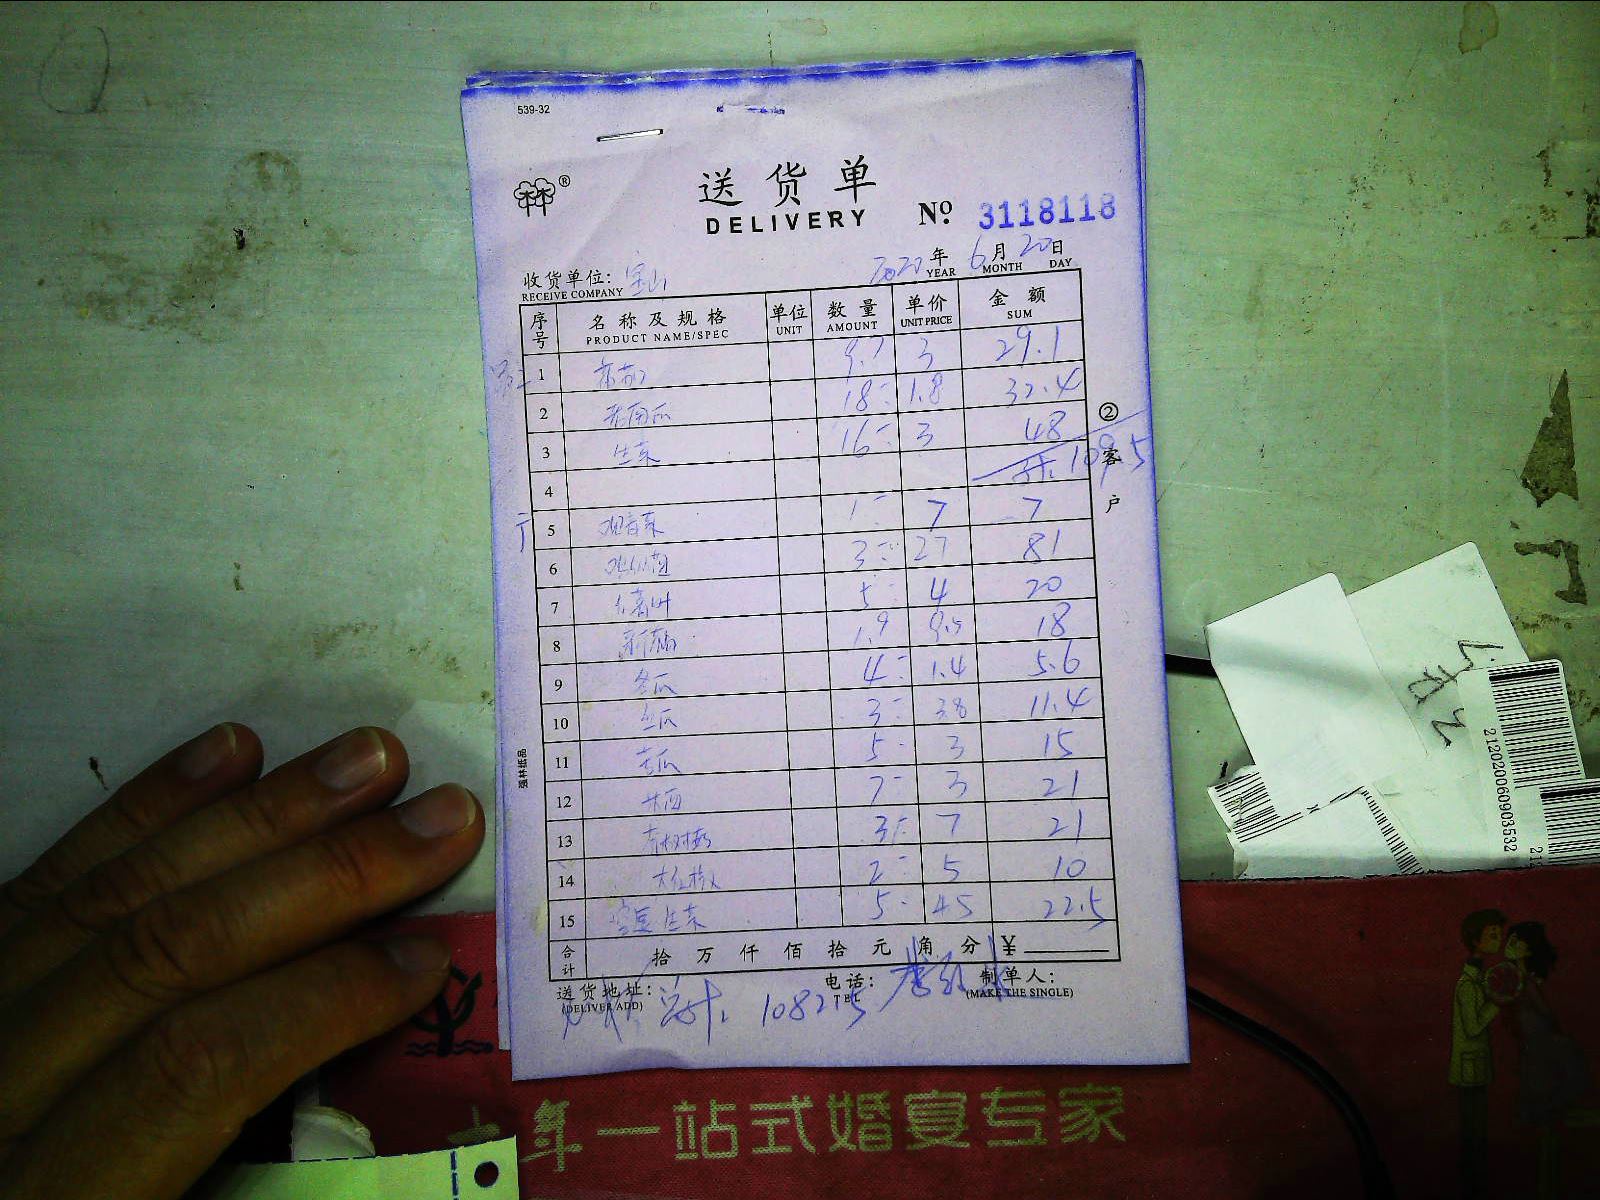 539-32
送货单
DELIVERY
№ 3118118
收货单位: 宝山
RECEIVE COMPANY
2020年 6月 20日
YEAR MONTH DAY
序号 名称及规格 单位 数量 单价 金额
PRODUCT NAME/SPEC UNIT AMOUNT UNIT PRICE SUM
1 9.7 3 29.1
2 老南瓜 18 1.8 32.4
3 生菜 16 3 48
4 109.5
5 观音菜 1 7 7
6 3 27 81
7 红薯叶 5 4 20
8 1.9 9.5 18
9 冬瓜 4 1.4 5.6
10 丝瓜 3 3.8 11.4
11 5 3 15
12 7 3 21
13 3 7 21
14 2 5 10
15 生菜 5 4.5 22.5
合计 拾万仟佰拾元角分 ¥
送货地址: 电话: 制单人:
(DELIVER ADD) TEL (MAKE THE SINGLE)
1082.5
②客户
强林纸品
年一站式婚宴专家
212020060903532
212